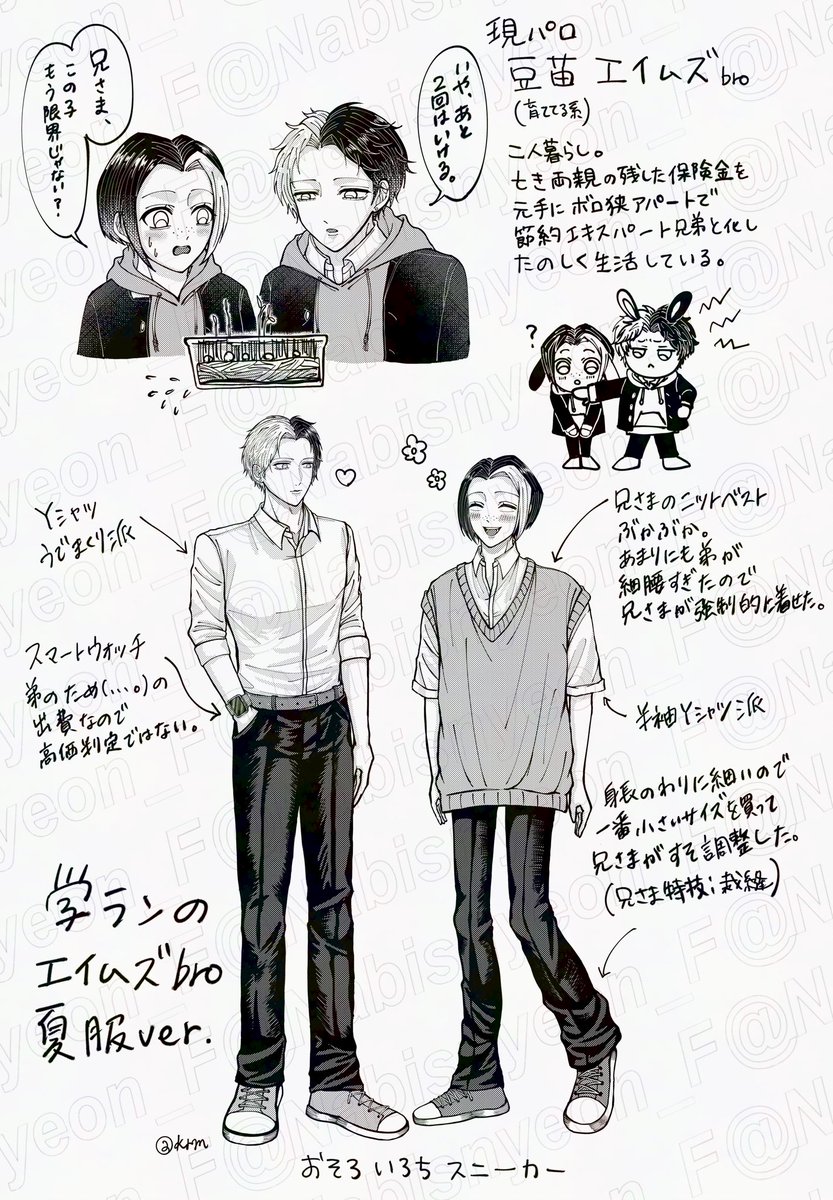 現パロ
豆苗 エイムズbro
(育ててる系)
二人暮らし。
亡き両親の残した保険金を
元手にボロ狭アパートで
節約エキスパート兄弟と化し
たのしく生活している。
いや、あと
2回はいける。
兄さま、
この子
もう限界じゃない?
?
Yシャツ
うでまくり派
スマートウォッチ
弟のため(....。)の
出費なので
高価判定ではない。
兄さまのニットベスト
ぶかぶか。
あまりにも弟が
細腰すぎたので
兄さまが強制的に着せた。
半袖Yシャツ派
身長のわりに細いので
一番小さいサイズを買って
兄さまがすそ調整した。
(兄さま特技:裁縫)
学ランの
エイムズbro
夏服ver.
おそろ いろち スニーカー
@Nabisnyeon_F